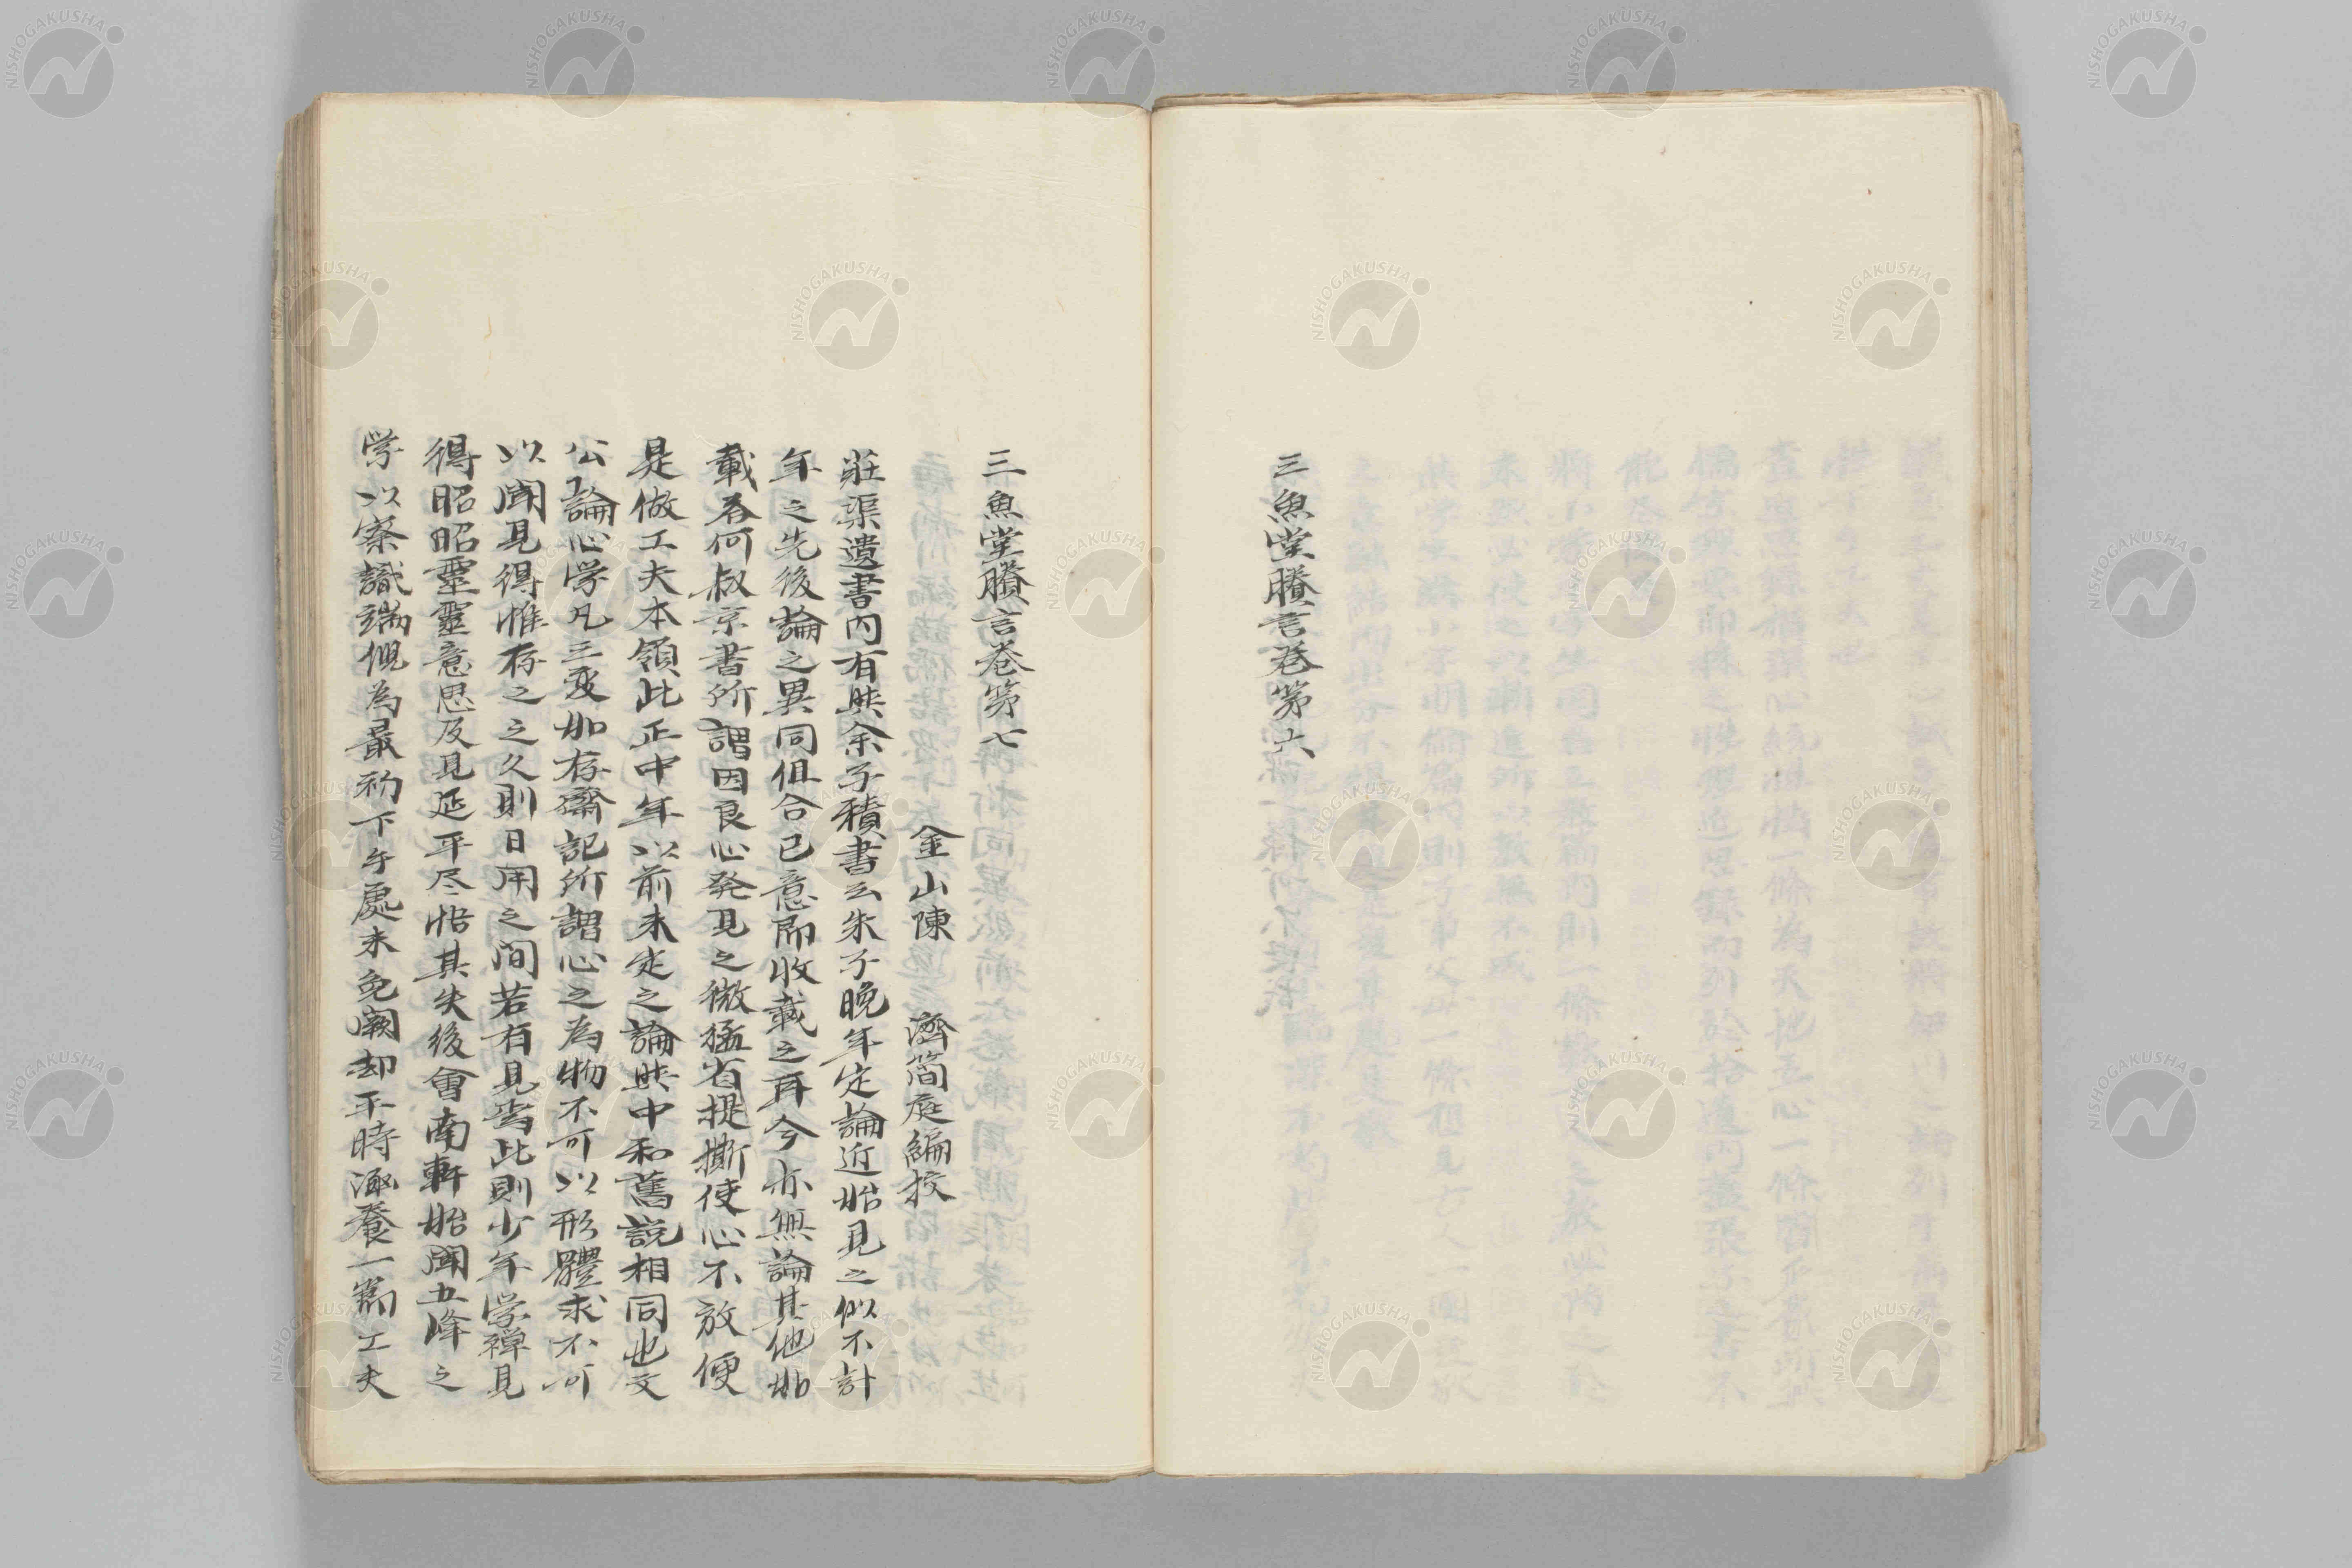 三魚堂賸言卷第六
三魚堂賸言卷第七
金山陳 濟簡庭編校
莊渠遺書内有與余子積書云朱子晚年定論近始見之似不計
年之先後論之異同但合已意即收載之耳今亦無論其他如
載答何叔京書所謂因良心発見之微猛省提撕使心不放便
是做工夫本領此正中年以前未定之論與中和舊説相同也文
公論心学凡三変如存齋記所謂心之為物不可以形體求不可
以聞見得惟存之之久則日用之间若有見焉此則少年学禅見
得昭昭靈靈意思及見延平尽悟其失後會南軒始聞五峰之
学以察識端倪為最初下手處未免闕却平時涵養一節工夫
NISHOGAKUSHA